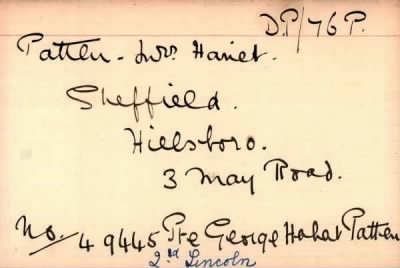 D.P/76 P.
Patten - Mrs Harriet.
Sheffield.
Hillsboro.
3 May Road.
No. 49445 Pte George Patten
2nd Lincoln